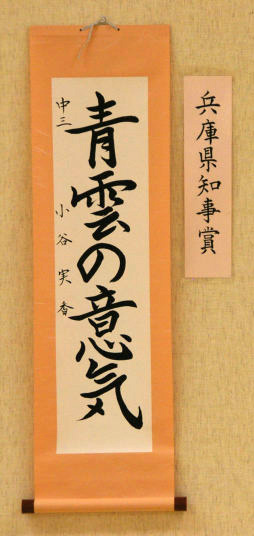 兵庫県知事賞
青雲の意気
中三 小谷実香